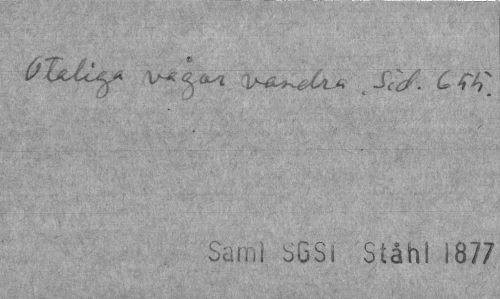 Otaliga vågor vandra. Sid. 655.
Saml SGSI Ståhl 1877